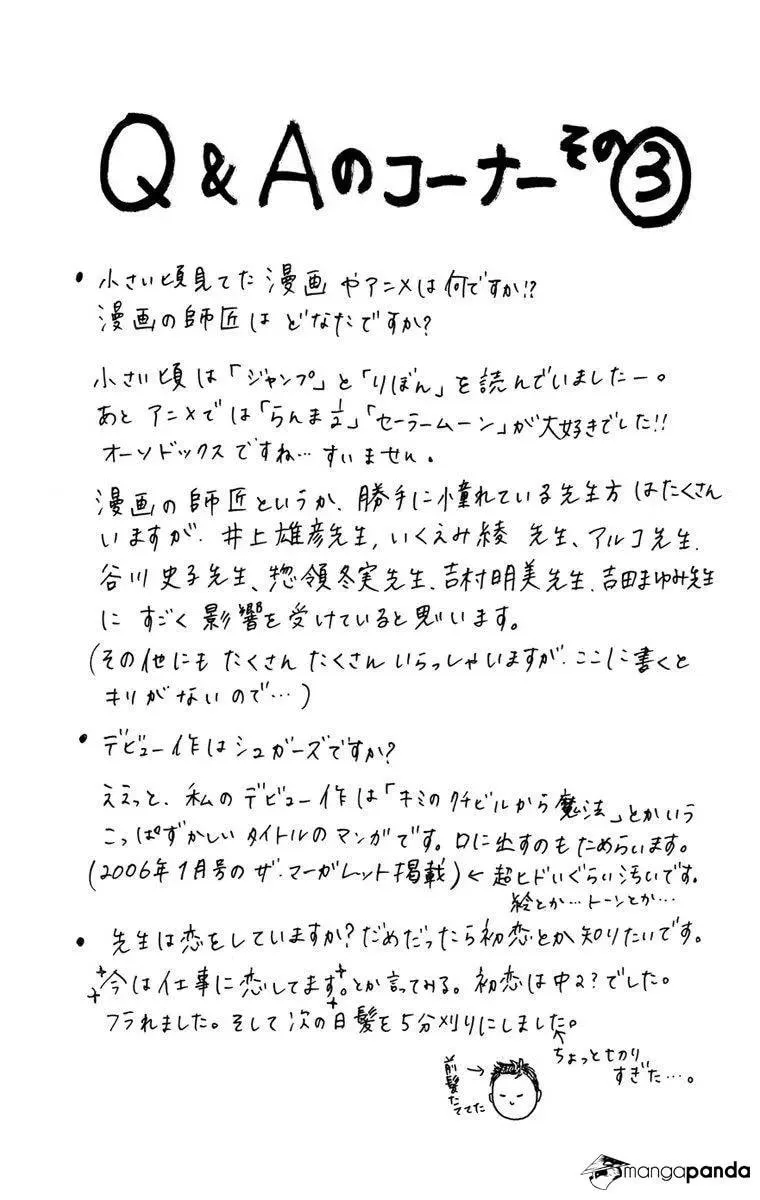 Q&Aのコーナーその③
• 小さい頃見てた漫画やアニメは何ですか!?
漫画の師匠はどなたですか?
小さい頃は「ジャンプ」と「りぼん」を読んでいましたー。
あとアニメでは「らんま1/2」「セーラームーン」が大好きでした!!
オーソドックスですね…すいません。
漫画の師匠というか、勝手に憧れている先生方はたくさん
いますが、井上雄彦先生、いくえみ綾先生、アルコ先生、
谷川史子先生、惣領冬実先生、吉村明美先生、吉田まゆみ先生
にすごく影響を受けていると思います。
(その他にもたくさんたくさんいらっしゃいますが、ここに書くと
キリがないので…)
• デビュー作はシュガーズですか?
ええっと、私のデビュー作は「キミのクチビルから魔法」とかいう
こっぱずかしいタイトルのマンガです。口に出すのもためらいます。
(2006年1月号のザ・マーガレット掲載)←超ヒドいぐらい汚いです。
絵とか…トーンとか…
• 先生は恋をしていますか?だめだったら初恋とか知りたいです。
今は仕事に恋してます。とか言ってみる。初恋は中2?でした。
フラれました。そして次の日髪を5分刈りにしました。
←ちょっともかり
すぎた…。
前髪たててた→
mangapanda